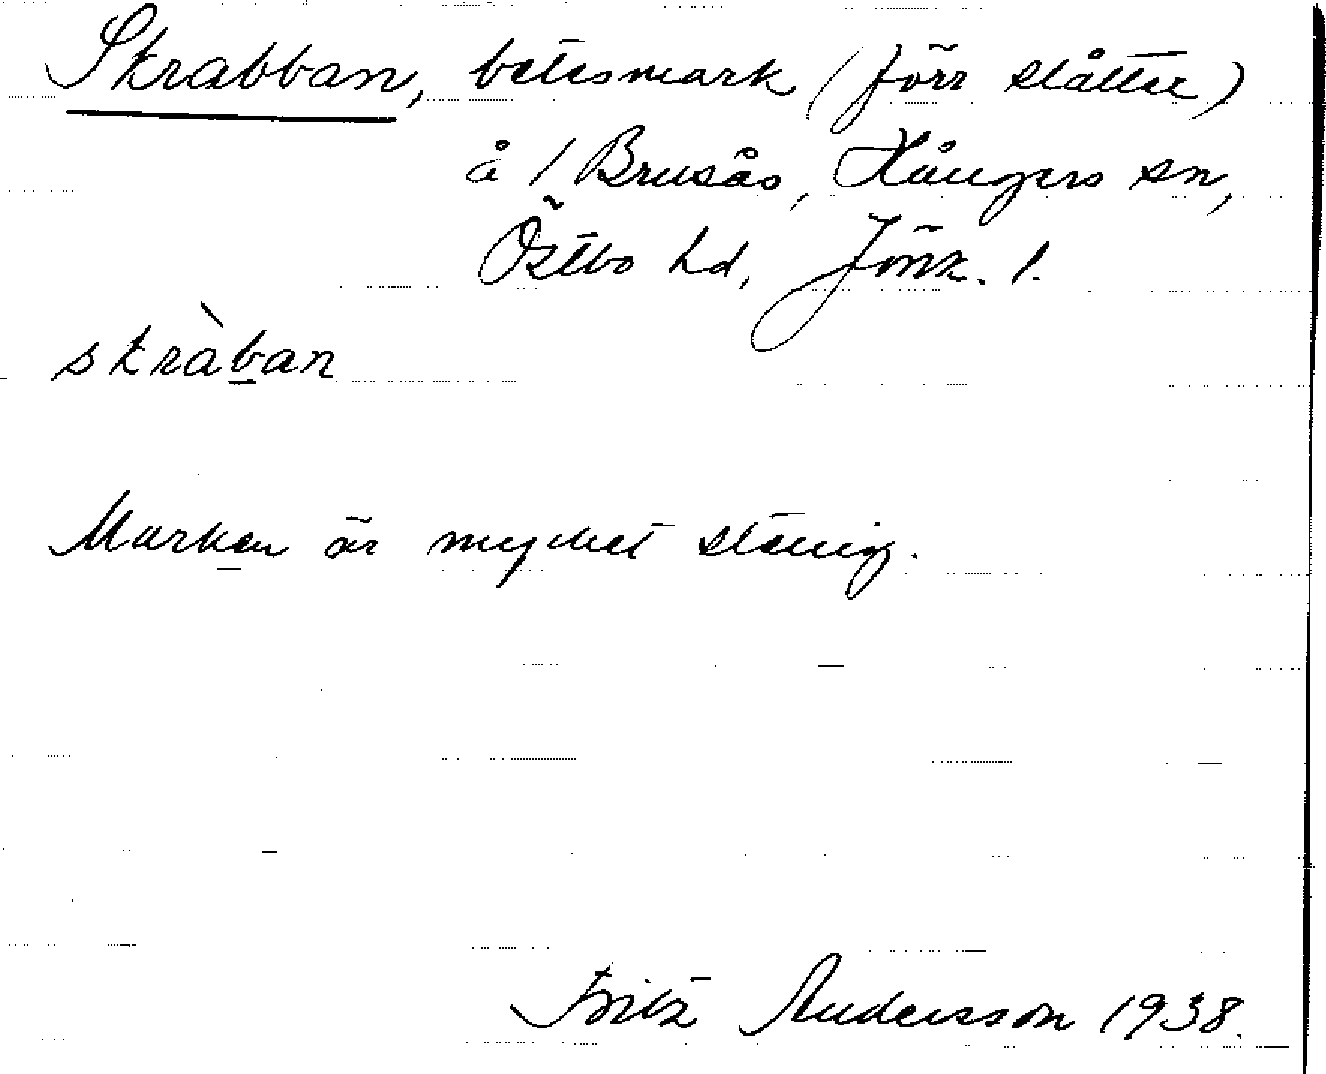 Skrabban, betesmark (förr slåtter)
å 1 Brusås, Kångers sn,
Östbo hd, Jönk. l.
skràb̲an
Marken är mycket stenig.
Fritz Andersson 1938.